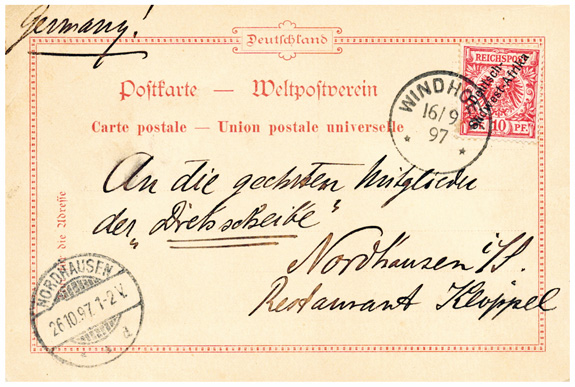 Germany!
Deutschland
Postkarte — Weltpostverein
Carte postale — Union postale universelle
REICHSPOST
Deutsch-
Südwest-Afrika
10 PF.
WINDHOEK
16/9
97
An die geehrten Mitglieder
der „Drehscheibe“
Nordhausen i/S.
Restaurant Klöppel
die Adresse
NORDHAUSEN
26.10.97. 1-2 V.